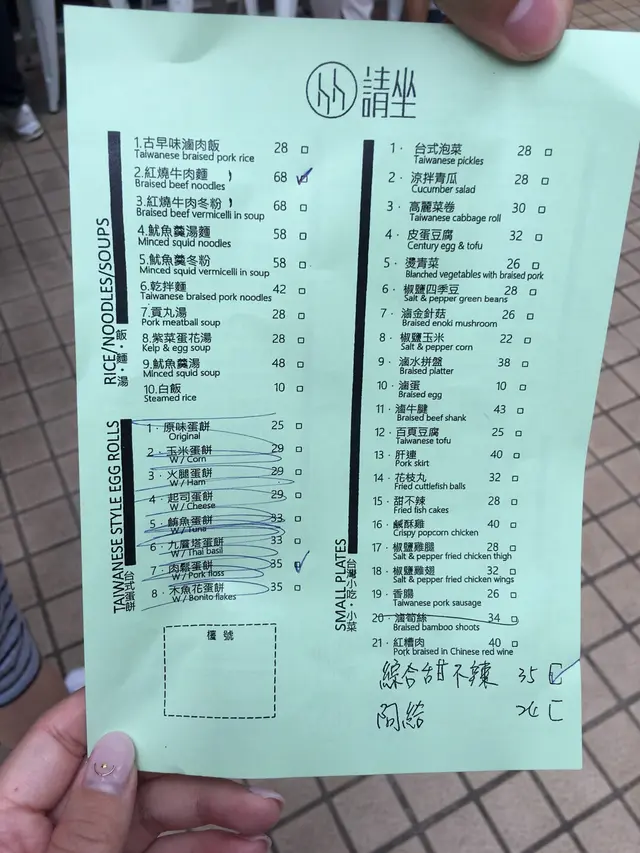 請坐
RICE/NOODLES/SOUPS
飯・麵・湯
1.古早味滷肉飯 28
Taiwanese braised pork rice
2.紅燒牛肉麵 68
Braised beef noodles
3.紅燒牛肉冬粉 68
Braised beef vermicelli in soup
4.魷魚羹湯麵 58
Minced squid noodles
5.魷魚羹冬粉 58
Minced squid vermicelli in soup
6.乾拌麵 42
Taiwanese braised pork noodles
7.貢丸湯 28
Pork meatball soup
8.紫菜蛋花湯 28
Kelp & egg soup
9.魷魚羹湯 48
Minced squid soup
10.白飯 10
Steamed rice
TAIWANESE STYLE EGG ROLLS
台式蛋餅
1・原味蛋餅 25
Original
2・玉米蛋餅 29
W / Corn
3・火腿蛋餅 29
W / Ham
4・起司蛋餅 29
W / Cheese
5・鮪魚蛋餅 33
W / Tuna
6・九層塔蛋餅 33
W / Thai basil
7・肉鬆蛋餅 35
W / Pork floss
8・木魚花蛋餅 35
W / Bonito flakes
檯號
SMALL PLATES
台灣小吃・小菜
1・台式泡菜 28
Taiwanese pickles
2・涼拌青瓜 28
Cucumber salad
3・高麗菜卷 30
Taiwanese cabbage roll
4・皮蛋豆腐 32
Century egg & tofu
5・燙青菜 26
Blanched vegetables with braised pork
6・椒鹽四季豆 28
Salt & pepper green beans
7・滷金針菇 26
Braised enoki mushroom
8・椒鹽玉米 22
Salt & pepper corn
9・滷水拼盤 38
Braised platter
10・滷蛋 10
Braised egg
11・滷牛腱 43
Braised beef shank
12・百頁豆腐 25
Taiwanese tofu
13・肝連 40
Pork skirt
14・花枝丸 32
Fried cuttlefish balls
15・甜不辣 28
Fried fish cakes
16・鹹酥雞 40
Crispy popcorn chicken
17・椒鹽雞腿 28
Salt & pepper fried chicken thigh
18・椒鹽雞翅 32
Salt & pepper fried chicken wings
19・香腸 26
Taiwanese pork sausage
20・滷筍絲 34
Braised bamboo shoots
21・紅糟肉 40
Pork braised in Chinese red wine
綜合甜不辣 35